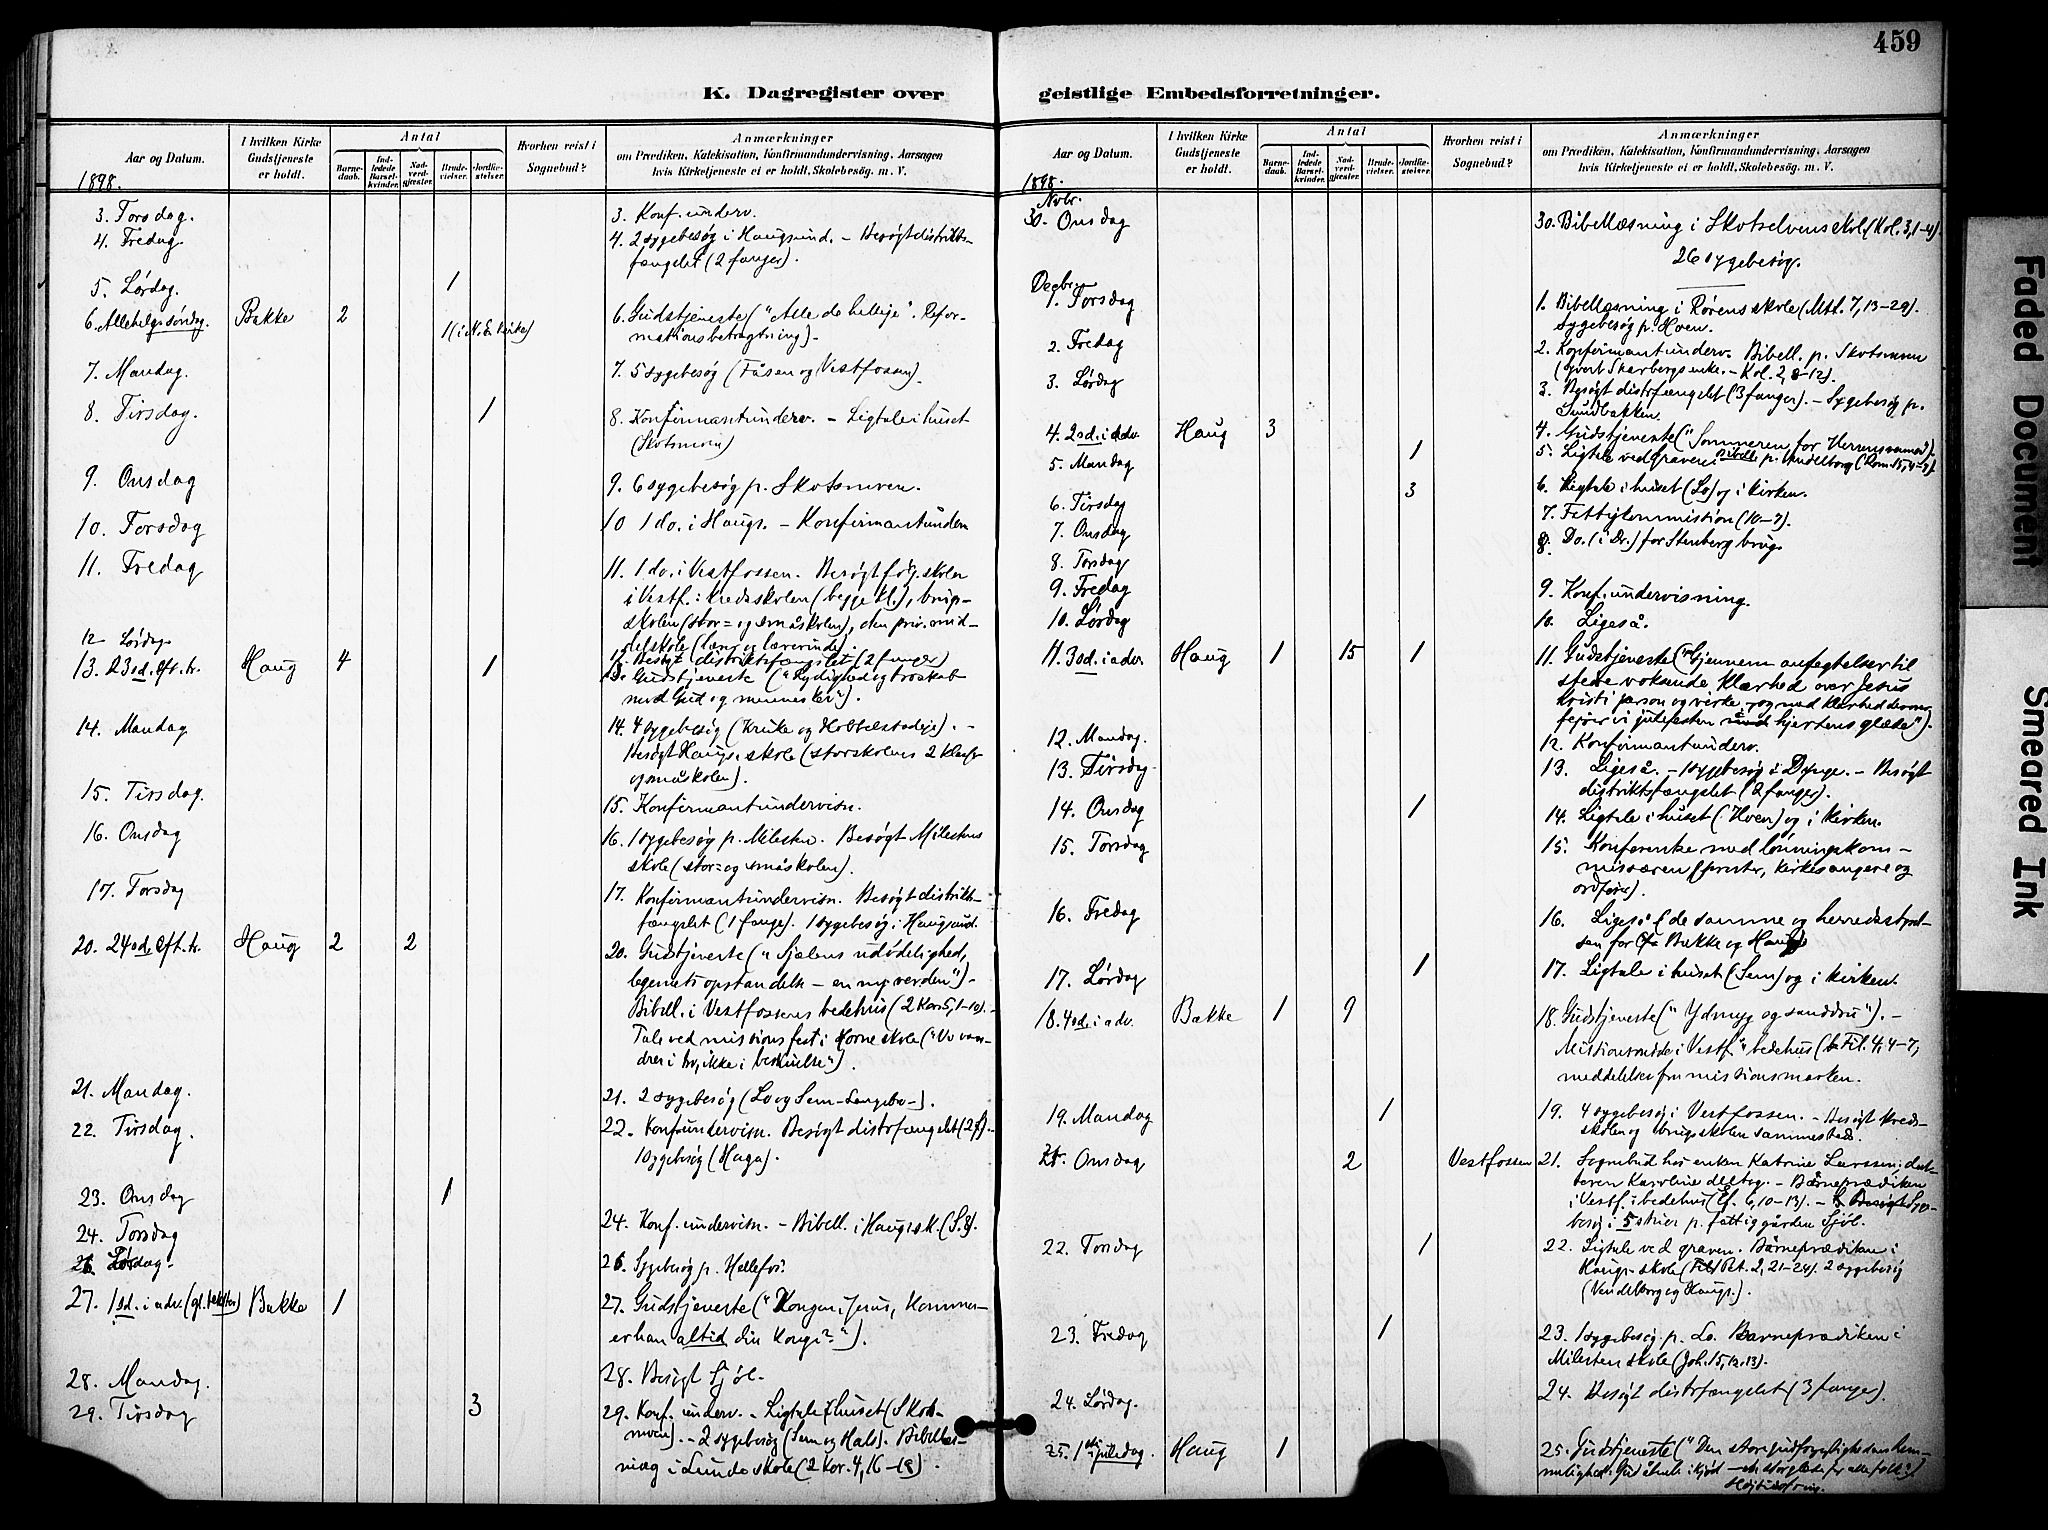 459
K. Dagregister over geistlige Embedsforretninger.
Aar og Datum.
I hvilken Kirke Gudstjeneste er holdt.
Antal
Barnedaab.
Indledede Barselkvinder.
Nadverdgjester.
Brudevielser.
Jordfæstelser.
Hvorhen reist i Sognebud?
Anmærkninger
om Prædiken, Katekisation, Konfirmandundervisning, Aarsagen
hvis Kirketjeneste ei er holdt, Skolebesøg. m. V.
1898.
3. Torsdag. 3. Konf. underv.
4. Fredag. 4. 2 sygebesøg i Haugsund. – Besøgt distrikts-
fængslet (2 fanger).
5. Lørdag. 1
6. Allehelgsøndag. Bakke 2 1 (i N. E. kirke) 6. Gudstjeneste ("Alle de hellige". Refor-
mationsbetragtning).
7. Mandag. 7. 5 sygebesøg (Fåsen og Vestfossen).
8. Tirsdag. 1 8. Konfirmantunderv. – Ligtale i huset
(Skotsmoen)
9. Onsdag 9. 6 sygebesøg p. Skotsmoen.
10. Torsdag 10 1 do. i Haugs. – Konfirmantunderv
11. Fredag 11. 1 do. i Vestfossen. Besøgt følg. skoler
i Vestf.: kredsskolen (begge kl.), brugs-
skolen (stor= og småskolen), den priv. mid-
delskole (lærer og lærerinde)
12 Lørdag 12. Besøgt distriktsfængslet (2 fanger)
13. 23 sd. eft. tr. Haug 4 1 13. Gudstjeneste ("Lydighed og troskab
mod Gud og mennesker").
14. Mandag 14. 4 sygebesøg (Kruke og Hobbelstadeje). –
Besøgt Haugs. skole (storskolens 2 klasser
og småskolen).
15. Tirsdag. 15. Konfirmantundervisn.
16. Onsdag 16. 1 sygebesøg p. Milesten. Besøgt Milestens
skole (stor= og småskolen).
17. Torsdag 17. Konfirmantundervisn. Besøgt distrikts-
fængslet (1 fange). 1 sygebesøg i Haugsund.
20. 24 sd. eft. tr. Haug 2 2 20. Gudstjeneste ("Sjælens udødelighed,
legemets opstandelse – en ny verden").
Bibell. i Vestfossens bedehus (2 Kor 5, 1–10). –
Tale ved missionsfest i Horne skole ("Vi van-
drer i tro, ikke i beskuelse").
21. Mandag. 21. 2 sygebesøg (Lo og Sem-Langebo-).
22. Tirsdag. 22. Konf. undervisn. Besøgt distr.fængslet (2 f). –
1 sygebesøg (Haga).
23. Onsdag 1
24. Torsdag 24. Konf. undervisn. – Bibell. i Haugs sk. (S. 8).
26 Lørdag. 26. Sygebesøg p. Hellefos.
27. 1 sd. i adv. (gl. tekster) Bakke 1 27. Gudstjeneste ("Kongen Jesus, kommer-
er han altid din konge?").
28. Mandag. 28. Besøgt Sjøl.
29. Tirsdag 3 29. Konf. underv. – Ligtale i huset (Skots-
moen). – 2 sygebesøg (Sem og Hals). Bibellæs-
ning i Lunde skole (2 Kor. 4, 16–18).
Aar og Datum.
I hvilken Kirke Gudstjeneste er holdt.
Antal
Barnedaab.
Indledede Barselkvinder.
Nadverdgjester.
Brudevielser.
Jordfæstelser.
Hvorhen reist i Sognebud?
Anmærkninger
om Prædiken, Katekisation, Konfirmandundervisning, Aarsagen
hvis Kirketjeneste ei er holdt, Skolebesøg. m. V.
1898.
Novbr.
30. Onsdag 30. Bibellæsning i Skotselvens skole (Kol. 3, 1–4).
26 sygebesøg.
Decbr.
1. Torsdag 1. Bibellæsning i Rørens skole (Mtt. 7, 13–29).
Sygebesøg p. Hoen.
2. Fredag 2. Konfirmantunderv. Bibell. p. Skotsmoen
(Skarbergs enke. – Kol. 2, 8–12).
3. Lørdag 3. Besøgt distr.fængslet (3 fanger). – Sygebesøg p.
Sundbakken.
4. 2 sd. i adv. Haug 3 4. Gudstjeneste ("Sommeren for Herrens
5. Mandag 1 5. Ligtale ved graven. Bibell. p. Vendelborg (Rom 15, 4–9).
6. Tirsdag 3 6. Ligtale i huset (Lo) og i kirken.
7. Onsdag 7. Fattigkommission (10–7).
8. Torsdag 8. Do. (i Dr.) for Stenberg brug.
9. Fredag 9. Konf. undervisning.
10. Lørdag 10. Ligeså.
11. 3 sd. i adv. Haug 1 15 1 11. Gudstjeneste ("Gjennem anfegtelser til
stedse voksende klarhed over Jesus
Kristi person og virke, og med klarhed derover
fejrer vi julefesten med hjertens glæde").
12. Mandag. 12. Konfirmantunderv.
13. Tirsdag. 13. Ligeså. – 1 sygebesøg i Dynge. – Besøgt
distriktsfængslet (2 fanger).
14. Onsdag 1 14. Ligtale i huset (Hoen) og i kirken.
15. Torsdag 15. Konferenke med lønningskom-
missæren (prester, kirkesangere og
ordfører).
16. Fredag 16. Ligeså (de samme og herredsstyrel-
sen for Bakke og Haug)
17. Lørdag 1 17. Ligtale i huset (Sem) og i kirken.
18. 4 sd. i adv. Bakke 1 9 18. Gudstjeneste ("Ydmyg og sanddru"). –
Missionsmøde i Vestf. bedehus (Fil. 4, 4–7,
meddelelser fra missionsmarken.
19. Mandag 1 19. 4 sygebesøg i Vestfossen. – Besøgt kreds-
skolen og brugsskolen sammesteds.
21. Onsdag 2 Vestfossen 21. Sognebud hos enken Katrine Larssen; dat-
teren Karoline deltog. – Barneprædiken
i Vestf. i bedehus (Ef. 6, 10–13). – Besøgt Syge-
besøg i 5 stuer p. fattiggården Sjøl.
22. Torsdag 1 22. Ligtale ved graven. Barneprædiken i
Haugs skole (Pet. 2, 21–24). 2 sygebesøg
(Vendelborg og Haugs.).
23. Fredag 1 23. 1 sygebesøg p. Lo. Barneprædiken i
Milesten skole (Joh. 15, 12. 13).
24. Lørdag. 24. Besøgt distr.fængslet (3 fanger).
25. 1ste juledag. Haug 1 25. Gudstjeneste ("Den store gudfrygtighedens hem-
melighed: Gud åbenb. i kjød – en stor glæde for alle folk").
Højtidsofring.
Faded Document
Smeared Ink